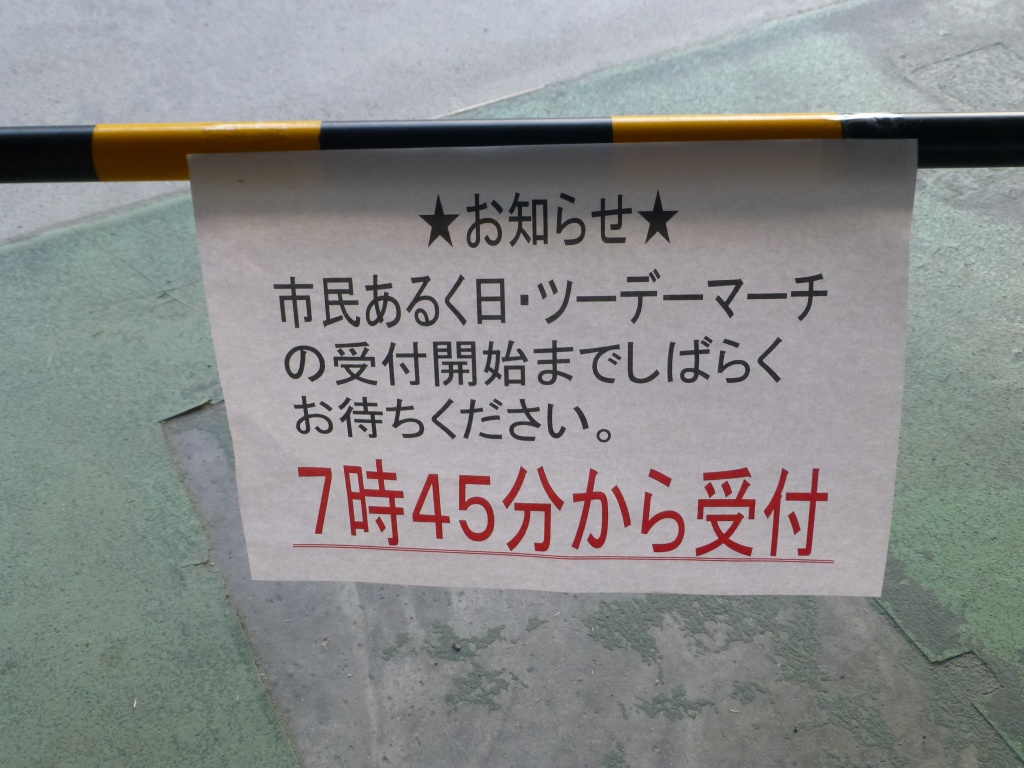 ★お知らせ★
市民あるく日・ツーデーマーチ
の受付開始までしばらく
お待ちください。
7時45分から受付